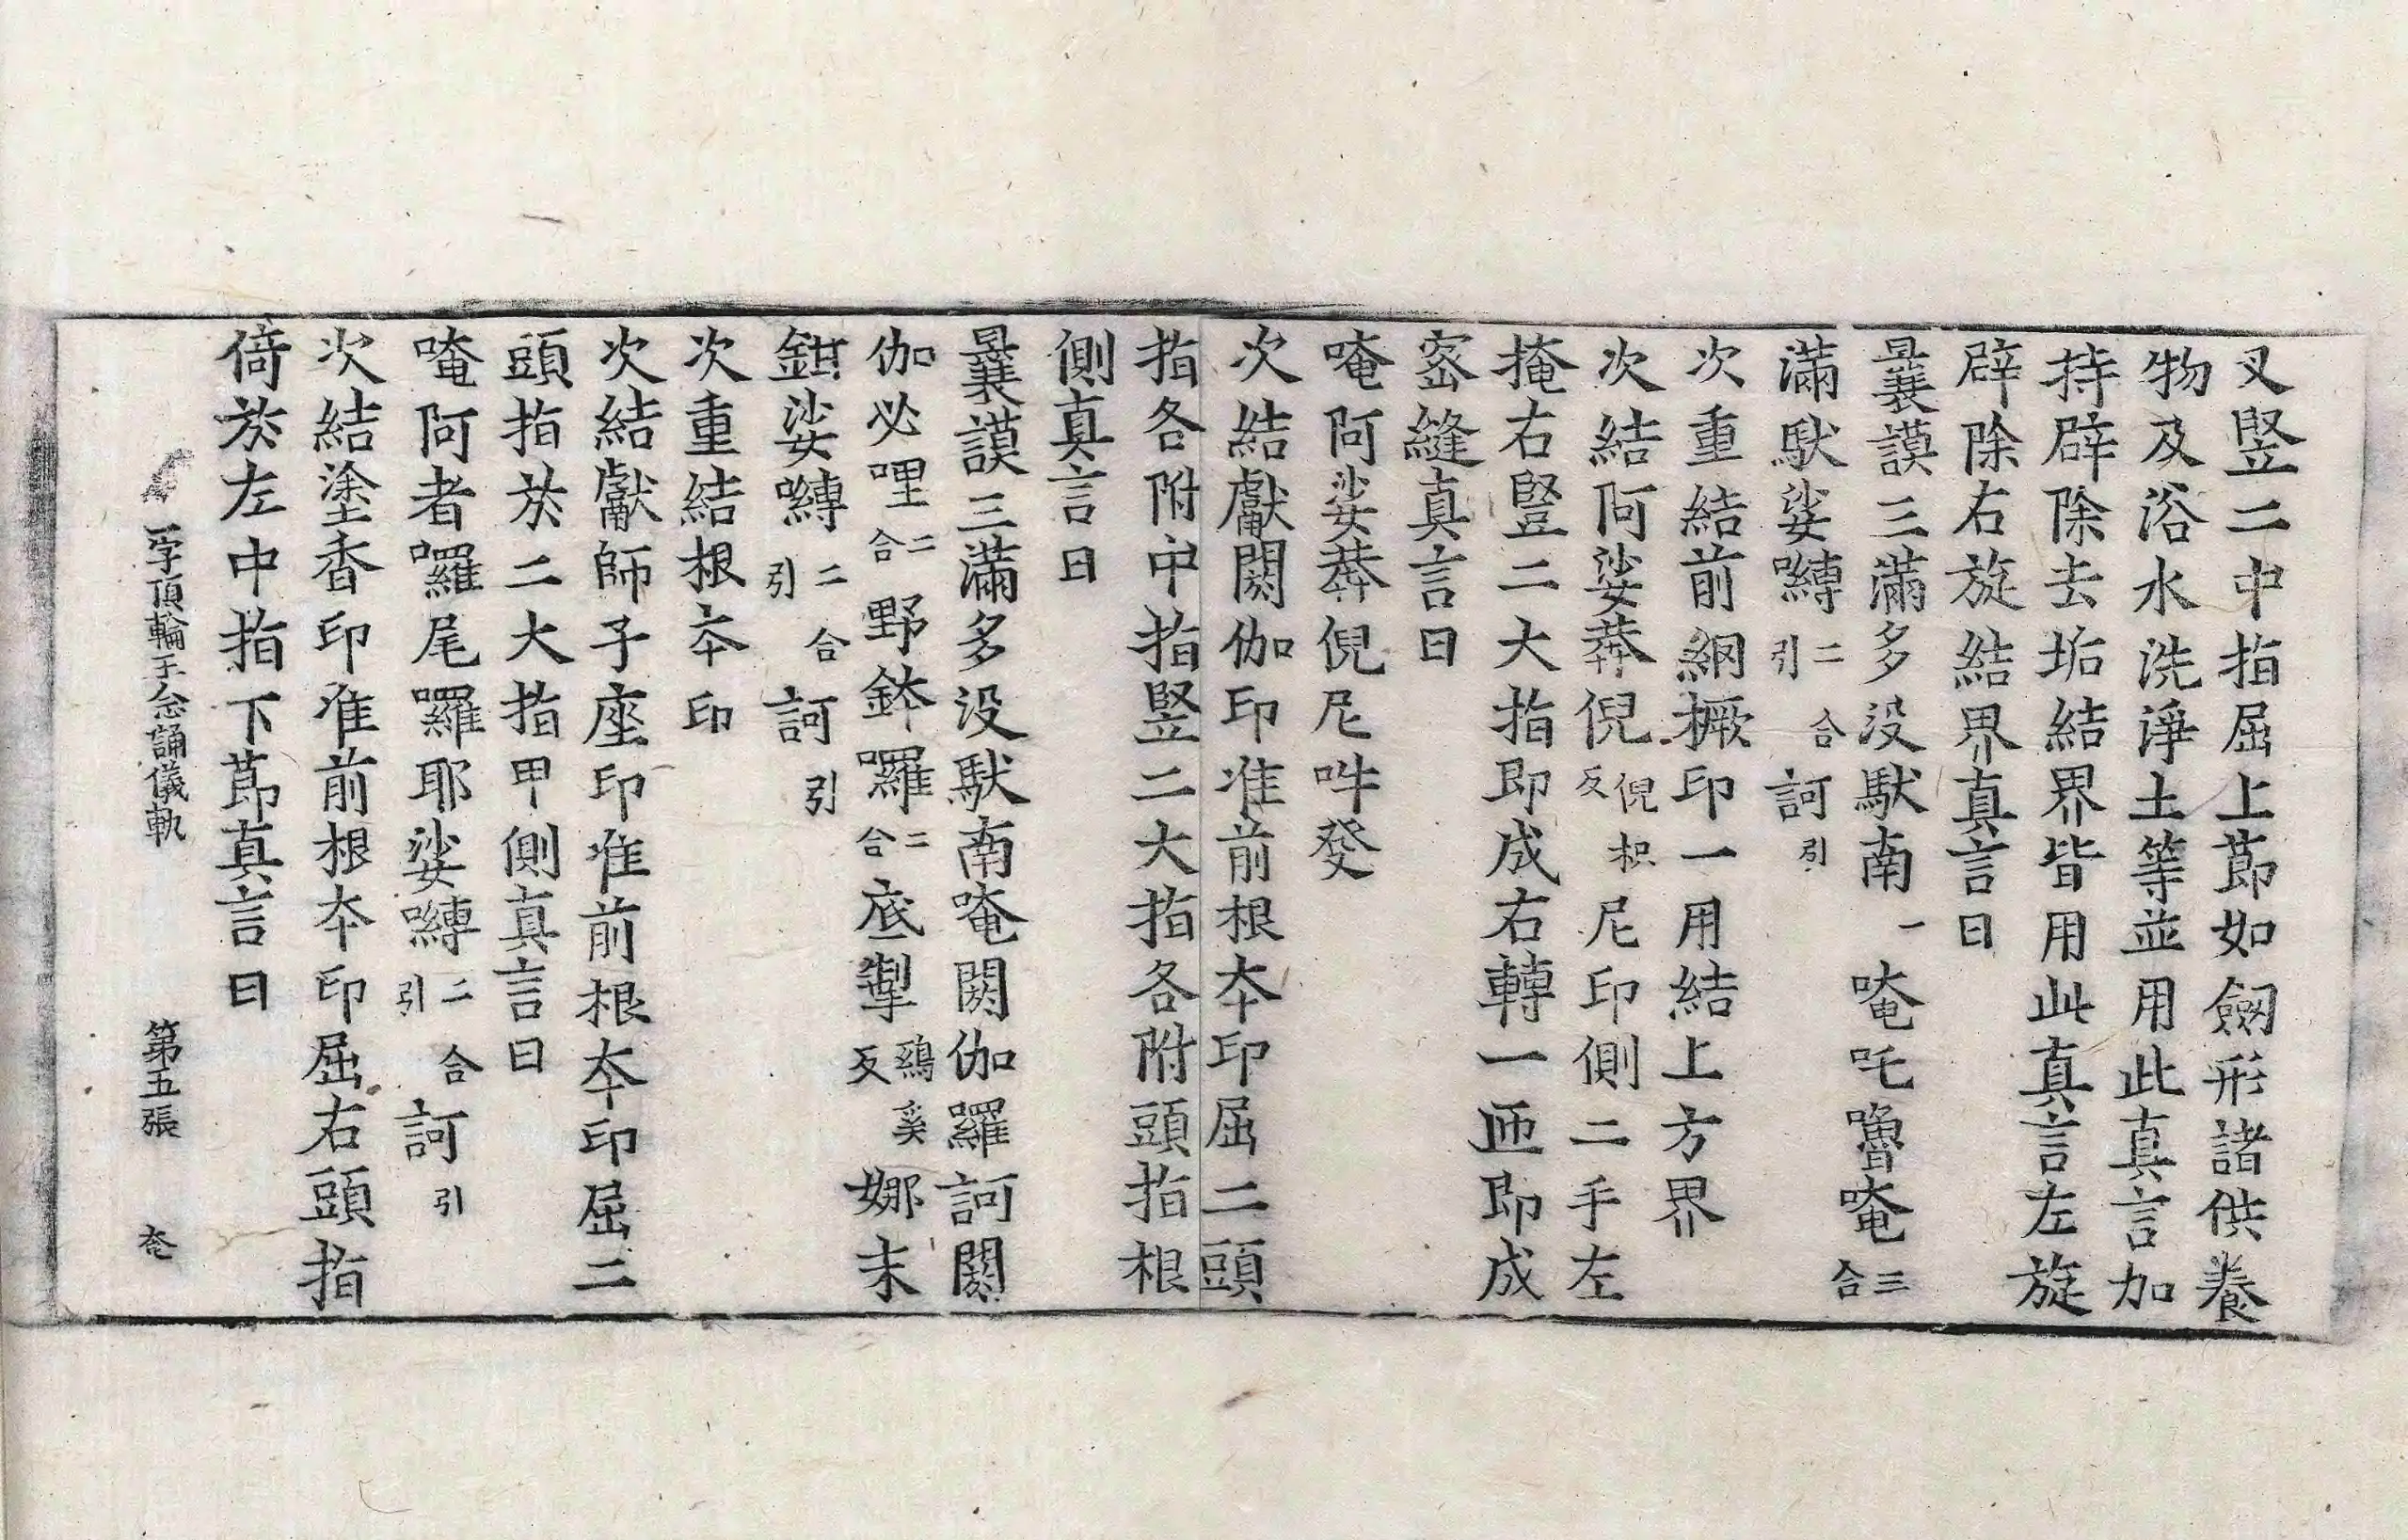 叉竪二中指屈上莭如劔形諸供養
物及浴水洗淨土等並用此真言加
持辟除去垢結界皆用此真言左旋
辟除右旋結界真言曰
曩謨三滿多没馱南一唵吒嚕唵三合
滿馱娑嚩二合引訶引
次重結前網橛印一用結上方界
次結阿娑莾倪倪枳反尼印側二手左
掩右竪二大指即成右轉一匝即成
宻縫真言曰
唵阿娑莾倪尼吽發
次結獻閼伽印准前根夲印屈二頭
指各附中指竪二大指各附頭指根
側真言曰
曩謨三滿多没馱南唵閼伽囉訶閼
伽必哩二合野鉢囉二合底掣鷄奚反娜末
鉗娑嚩二合引訶引
次重結根夲印
次結獻師子座印准前根夲印屈二
頭指扵二大指甲側真言曰
唵阿者囉尾囉耶娑嚩二合引訶引
次結塗香印准前根夲印屈右頭指
倚扵左中指下莭真言曰
一字頂輪王念誦儀軌 第五張